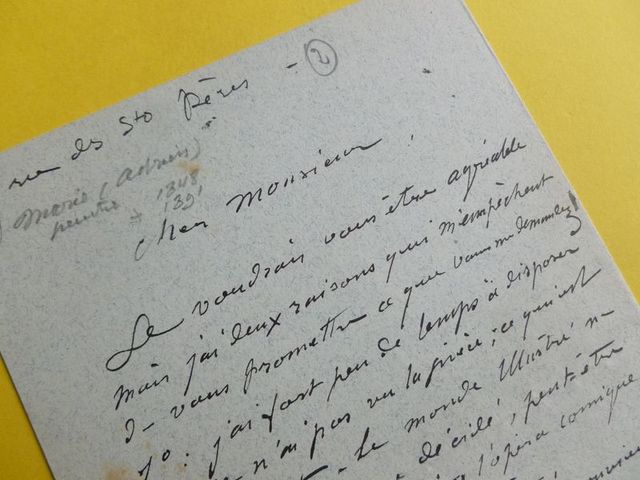 rue des Sts Pères - 2
Marie (Adrien)
peintre + 1848
1391
Cher Monsieur,
Je voudrais vous être agréable
mais j'ai deux raisons qui m'empêchent
de vous promettre ce que vous me demandez
1o: j'ai fort peu de temps à disposer
n'ai pas vu la pièce, ce qui est
Le monde Illustré n-
décidé, peut-être
l'opéra comique